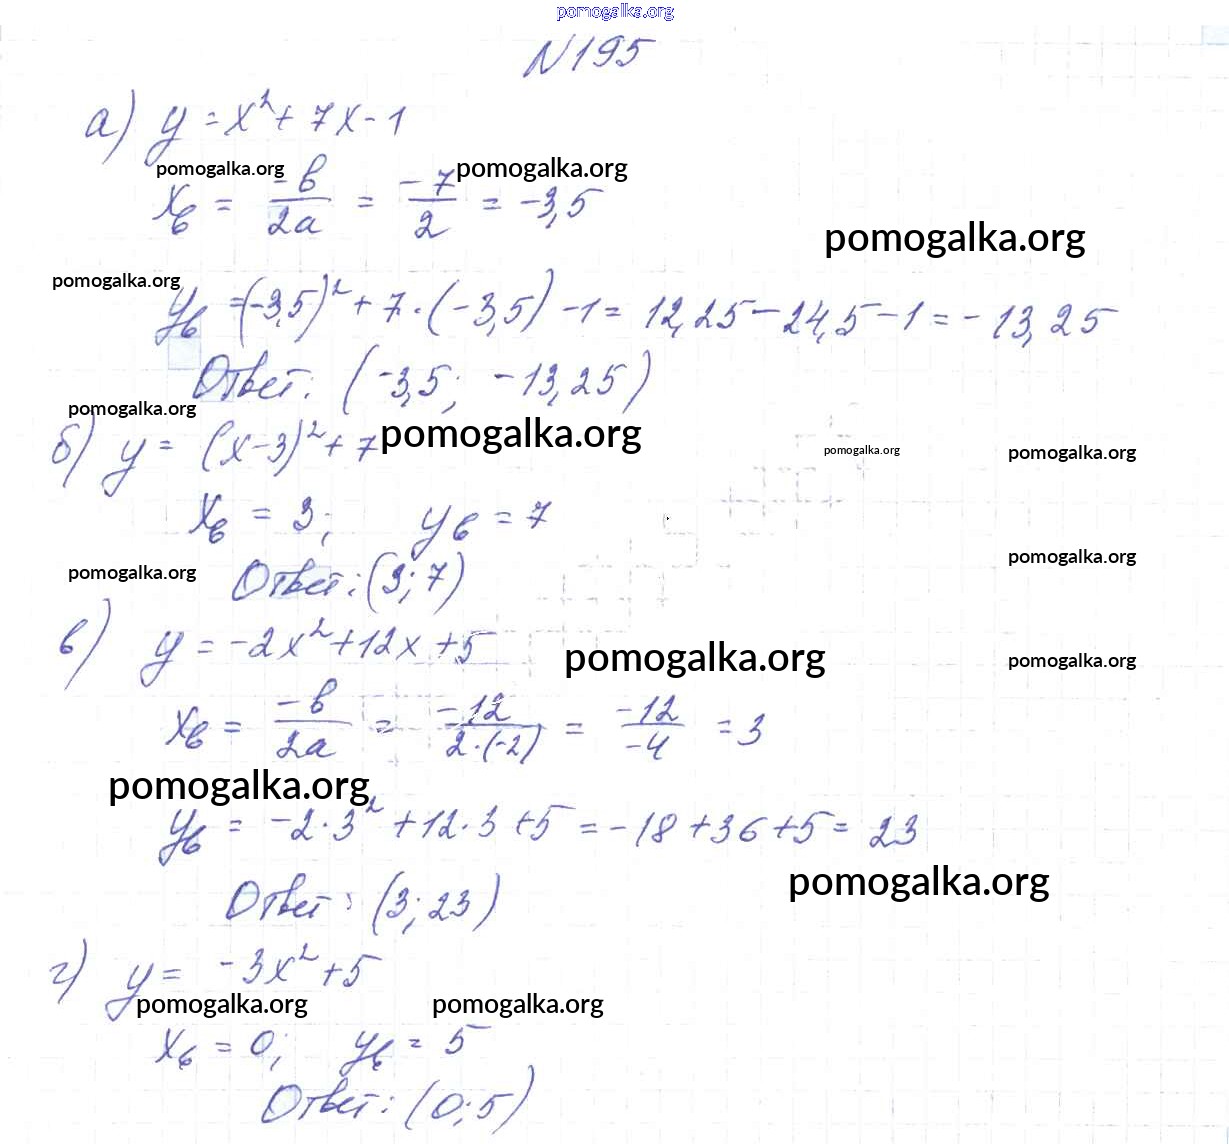 pomogalka.org
N195
а) y = x² + 7x - 1
pomogalka.org pomogalka.org
xв = -b/2a = -7/2 = -3,5
pomogalka.org
pomogalka.org
yв = (-3,5)² + 7·(-3,5) - 1 = 12,25 - 24,5 - 1 = -13,25
Ответ: (-3,5; -13,25)
pomogalka.org
б) y = (x-3)² + 7 pomogalka.org
pomogalka.org pomogalka.org
xв = 3; yв = 7
pomogalka.org
pomogalka.org Ответ: (3; 7)
в) y = -2x² + 12x + 5
pomogalka.org pomogalka.org
xв = -b/2a = -12/2·(-2) = -12/-4 = 3
pomogalka.org
yв = -2·3² + 12·3 + 5 = -18 + 36 + 5 = 23
pomogalka.org
Ответ: (3; 23)
г) y = -3x² + 5
pomogalka.org pomogalka.org
xв = 0; yв = 5
Ответ: (0; 5)